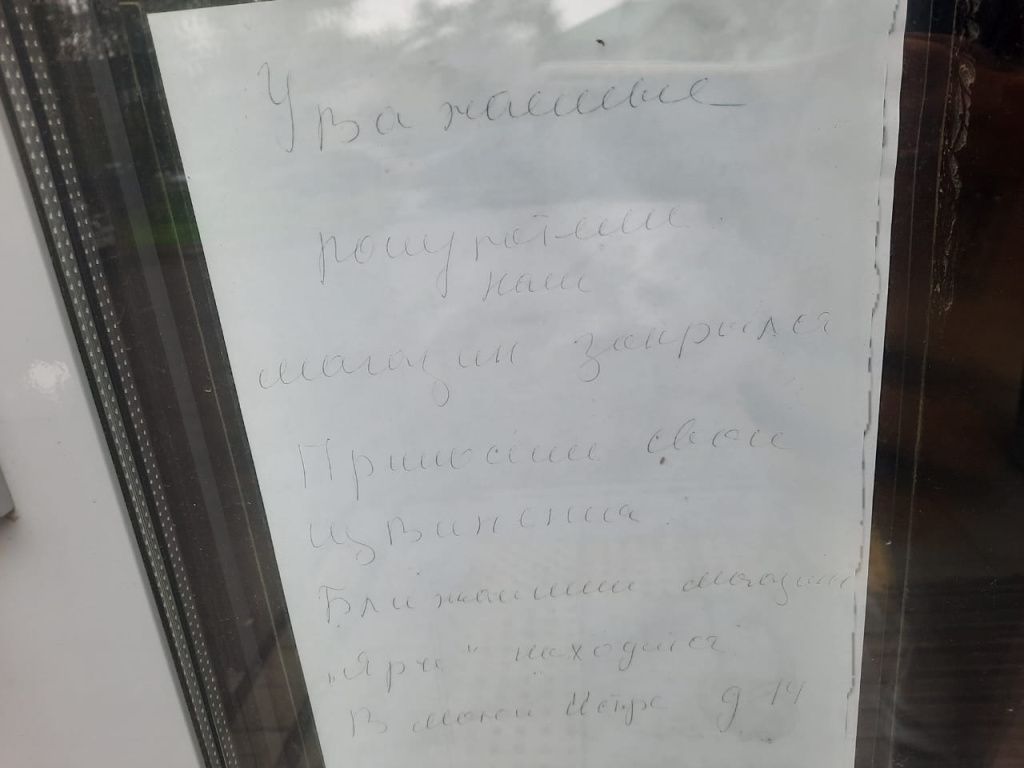 Уважаемые
покупатели
наш
магазин закрылся
Приносим свои
извинения.
Ближайший магазин
„Ярче" находится
В д 14